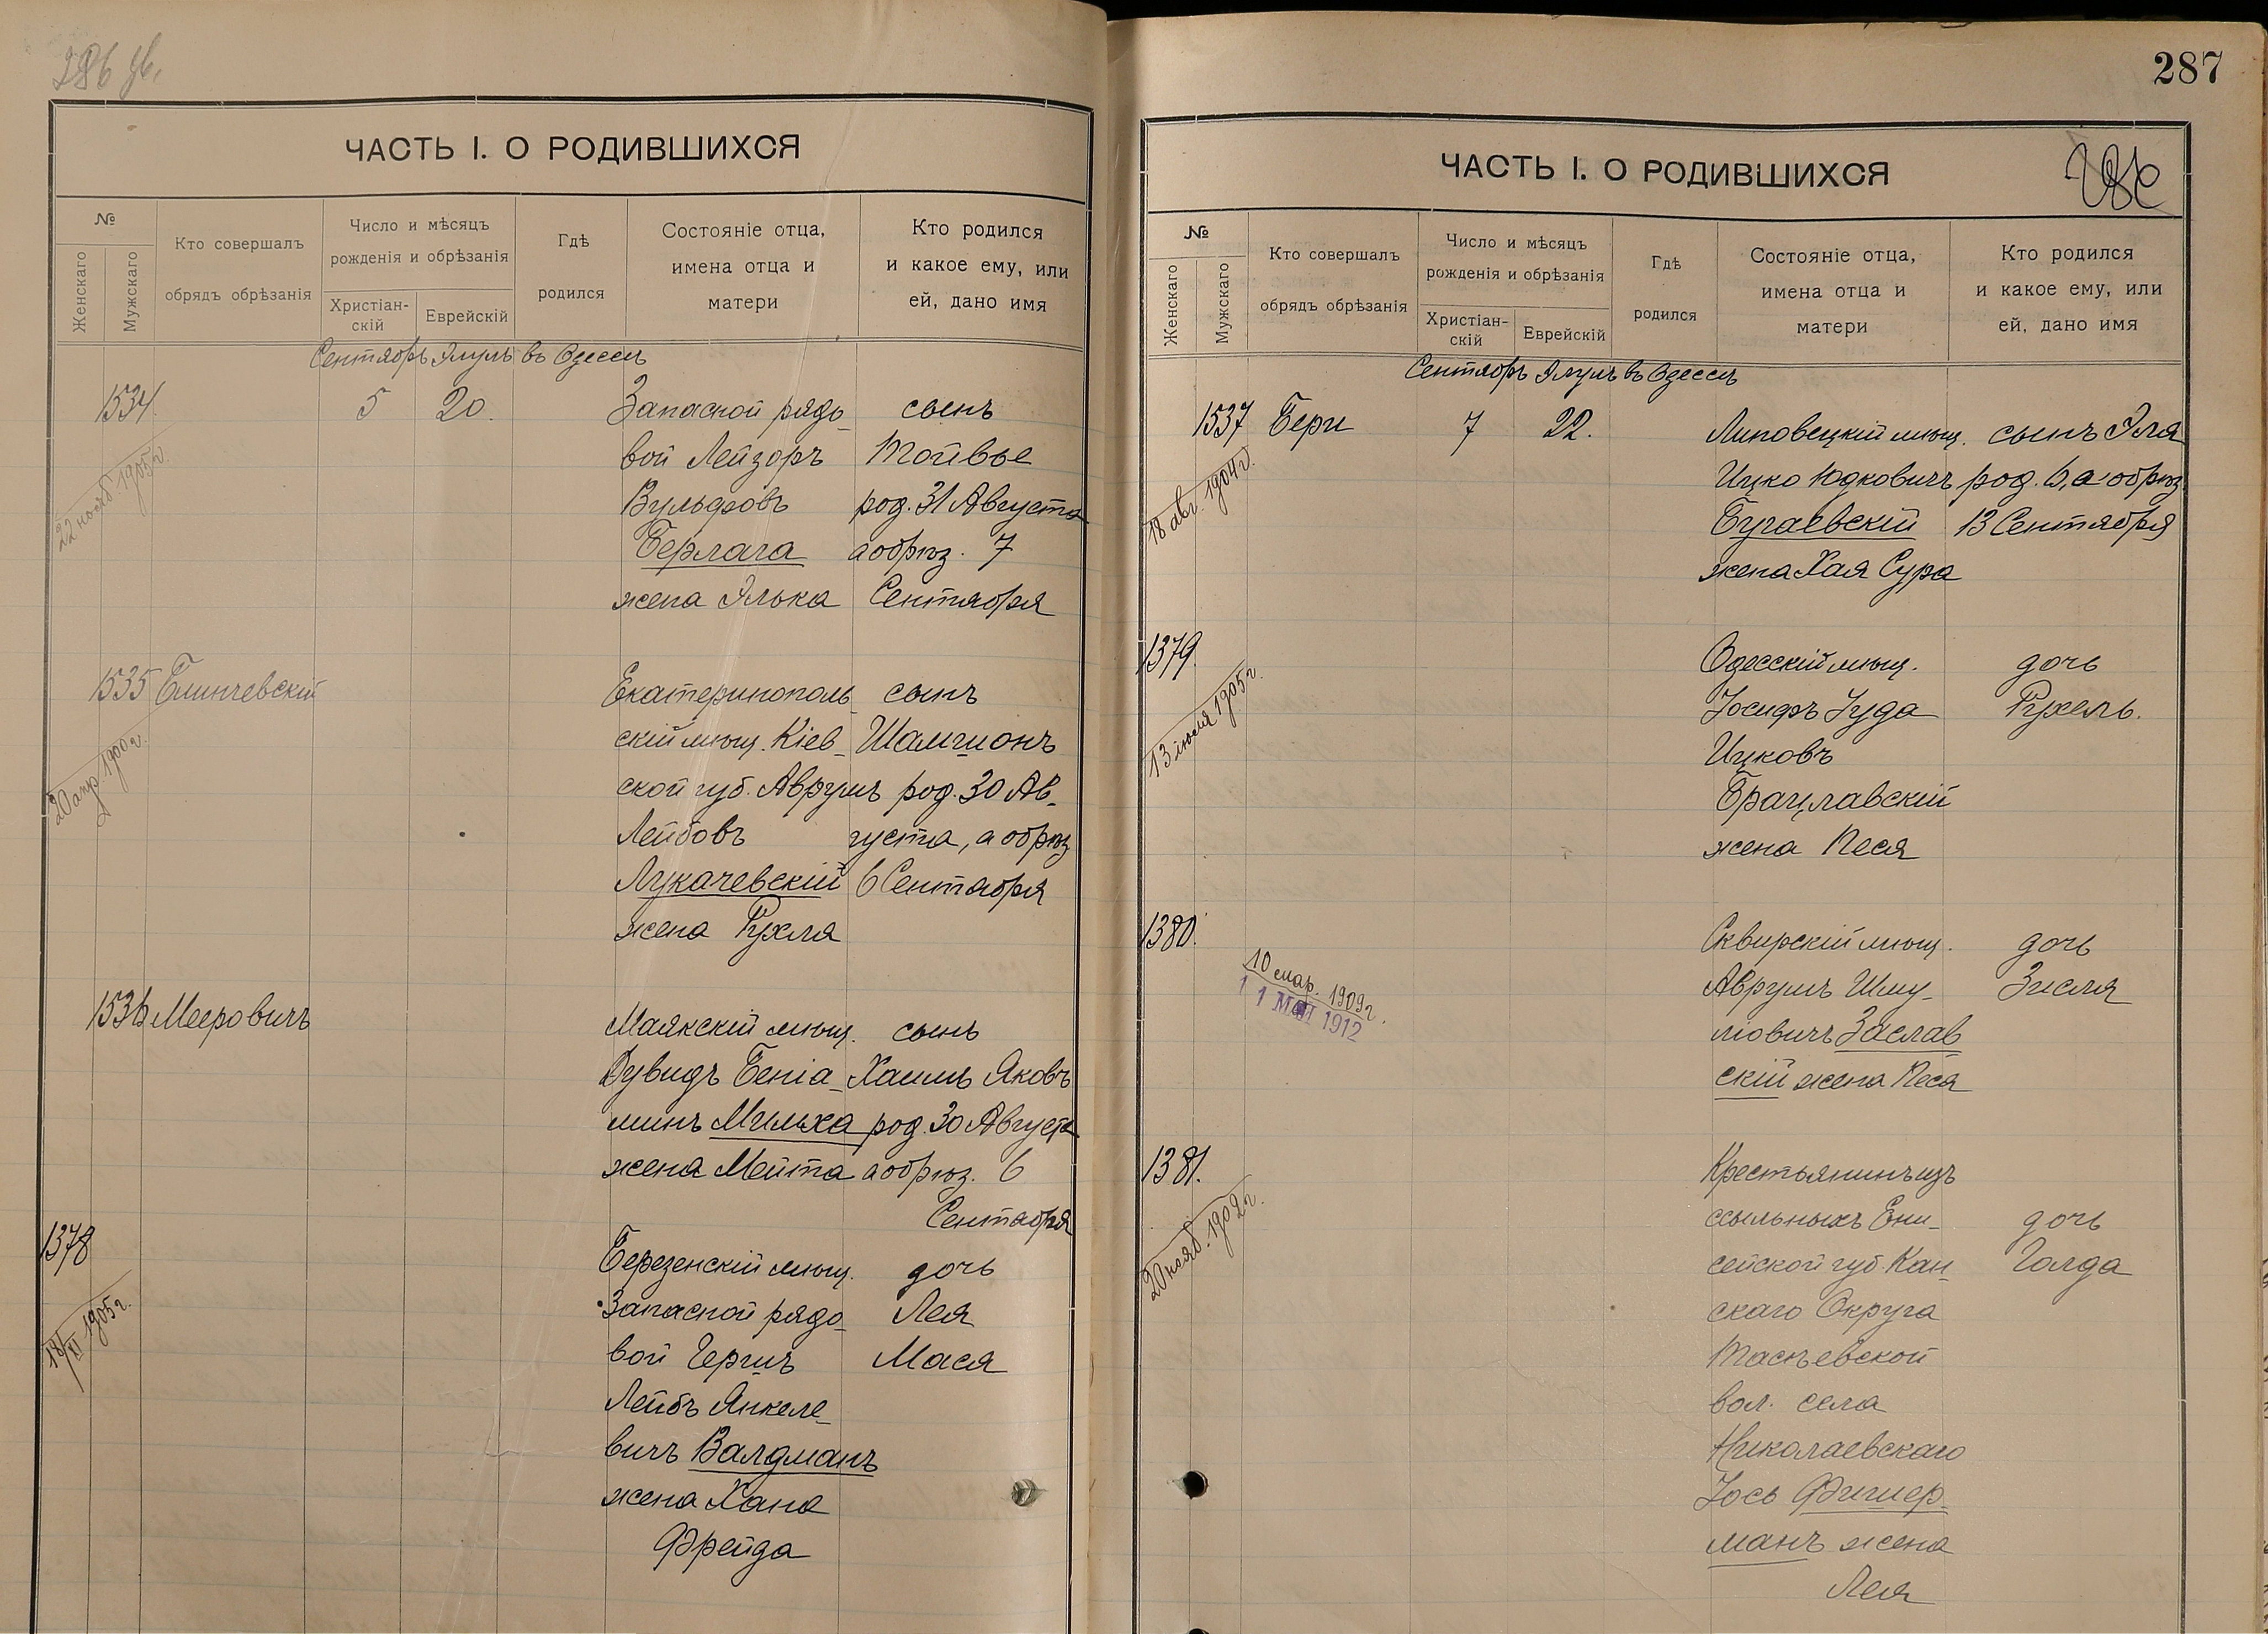 286 об.
ЧАСТЬ I. О РОДИВШИХСЯ
№
Женскаго
Мужскаго
Кто совершалъ
обрядъ обрѣзанія
Число и мѣсяцъ
рожденія и обрѣзанія
Христіан-
скій
Еврейскій
Гдѣ
родился
Состояніе отца,
имена отца и
матери
Кто родился
и какое ему, или
ей, дано имя
Сентябрь Элулъ въ Одессѣ
1534
22 нояб 1905 г.
5
20.
Запасной рядо-
вой Лейзоръ
Вульфовъ
Берлага
жена Элька
сынъ
Тойвье
род. 31 Августа
а обрѣз. 7
Сентября
1535
20 апр. 1900 г.
Блинчевскій
Екатеринополь-
скій мѣщ. Кіев-
ской губ. Аврумъ
Лейбовъ
Лукачевскій
жена Рухля
сынъ
Шамшонъ
род. 30 Ав-
густа, а обрѣз
6 Сентября
1536
Мееровичъ
Маякскій мѣщ.
Дувидъ Беніа-
минъ Мильха
жена Мейта
сынъ
Хаимъ Яковъ
род. 30 Августа
а обрѣз. 6
Сентября
1378
18/XI 1905 г.
Березенскій мѣщ.
Запасной рядо-
вой Гершъ
Лейбъ Янкеле-
вичъ Валдманъ
жена Хана
Фрейда
дочь
Лея
Мася
287
ЧАСТЬ I. О РОДИВШИХСЯ
№
Женскаго
Мужскаго
Кто совершалъ
обрядъ обрѣзанія
Число и мѣсяцъ
рожденія и обрѣзанія
Христіан-
скій
Еврейскій
Гдѣ
родился
Состояніе отца,
имена отца и
матери
Кто родился
и какое ему, или
ей, дано имя
Сентябрь Элулъ въ Одессѣ
1537
18 авг. 1904 г.
Бери
7
22.
Липовецкій мѣщ.
Ицко Юдковичъ
Бугаевскій
жена Хая Сура
сынъ Эля
род. 6, а обрѣз
13 Сентября
1379.
13 іюля 1905 г.
Одесскій мѣщ.
Іосифъ Іуда
Ицковъ
Брацлавскій
жена Песя
дочь
Рухель.
1380.
10 мар. 1909 г.
11 МАЯ 1912
Сквирскій мѣщ.
Аврумъ Шму-
ліовичъ Заслав
скій жена Песя
дочь
Зисля
1381.
20 нояб. 1902 г.
Крестьянинъ изъ
ссыльныхъ Ени-
сейской губ. Кан-
скаго Округа
Тасѣевской
вол. села
Николаевскаго
Іось Фишер-
манъ жена
Лея
дочь
Голда